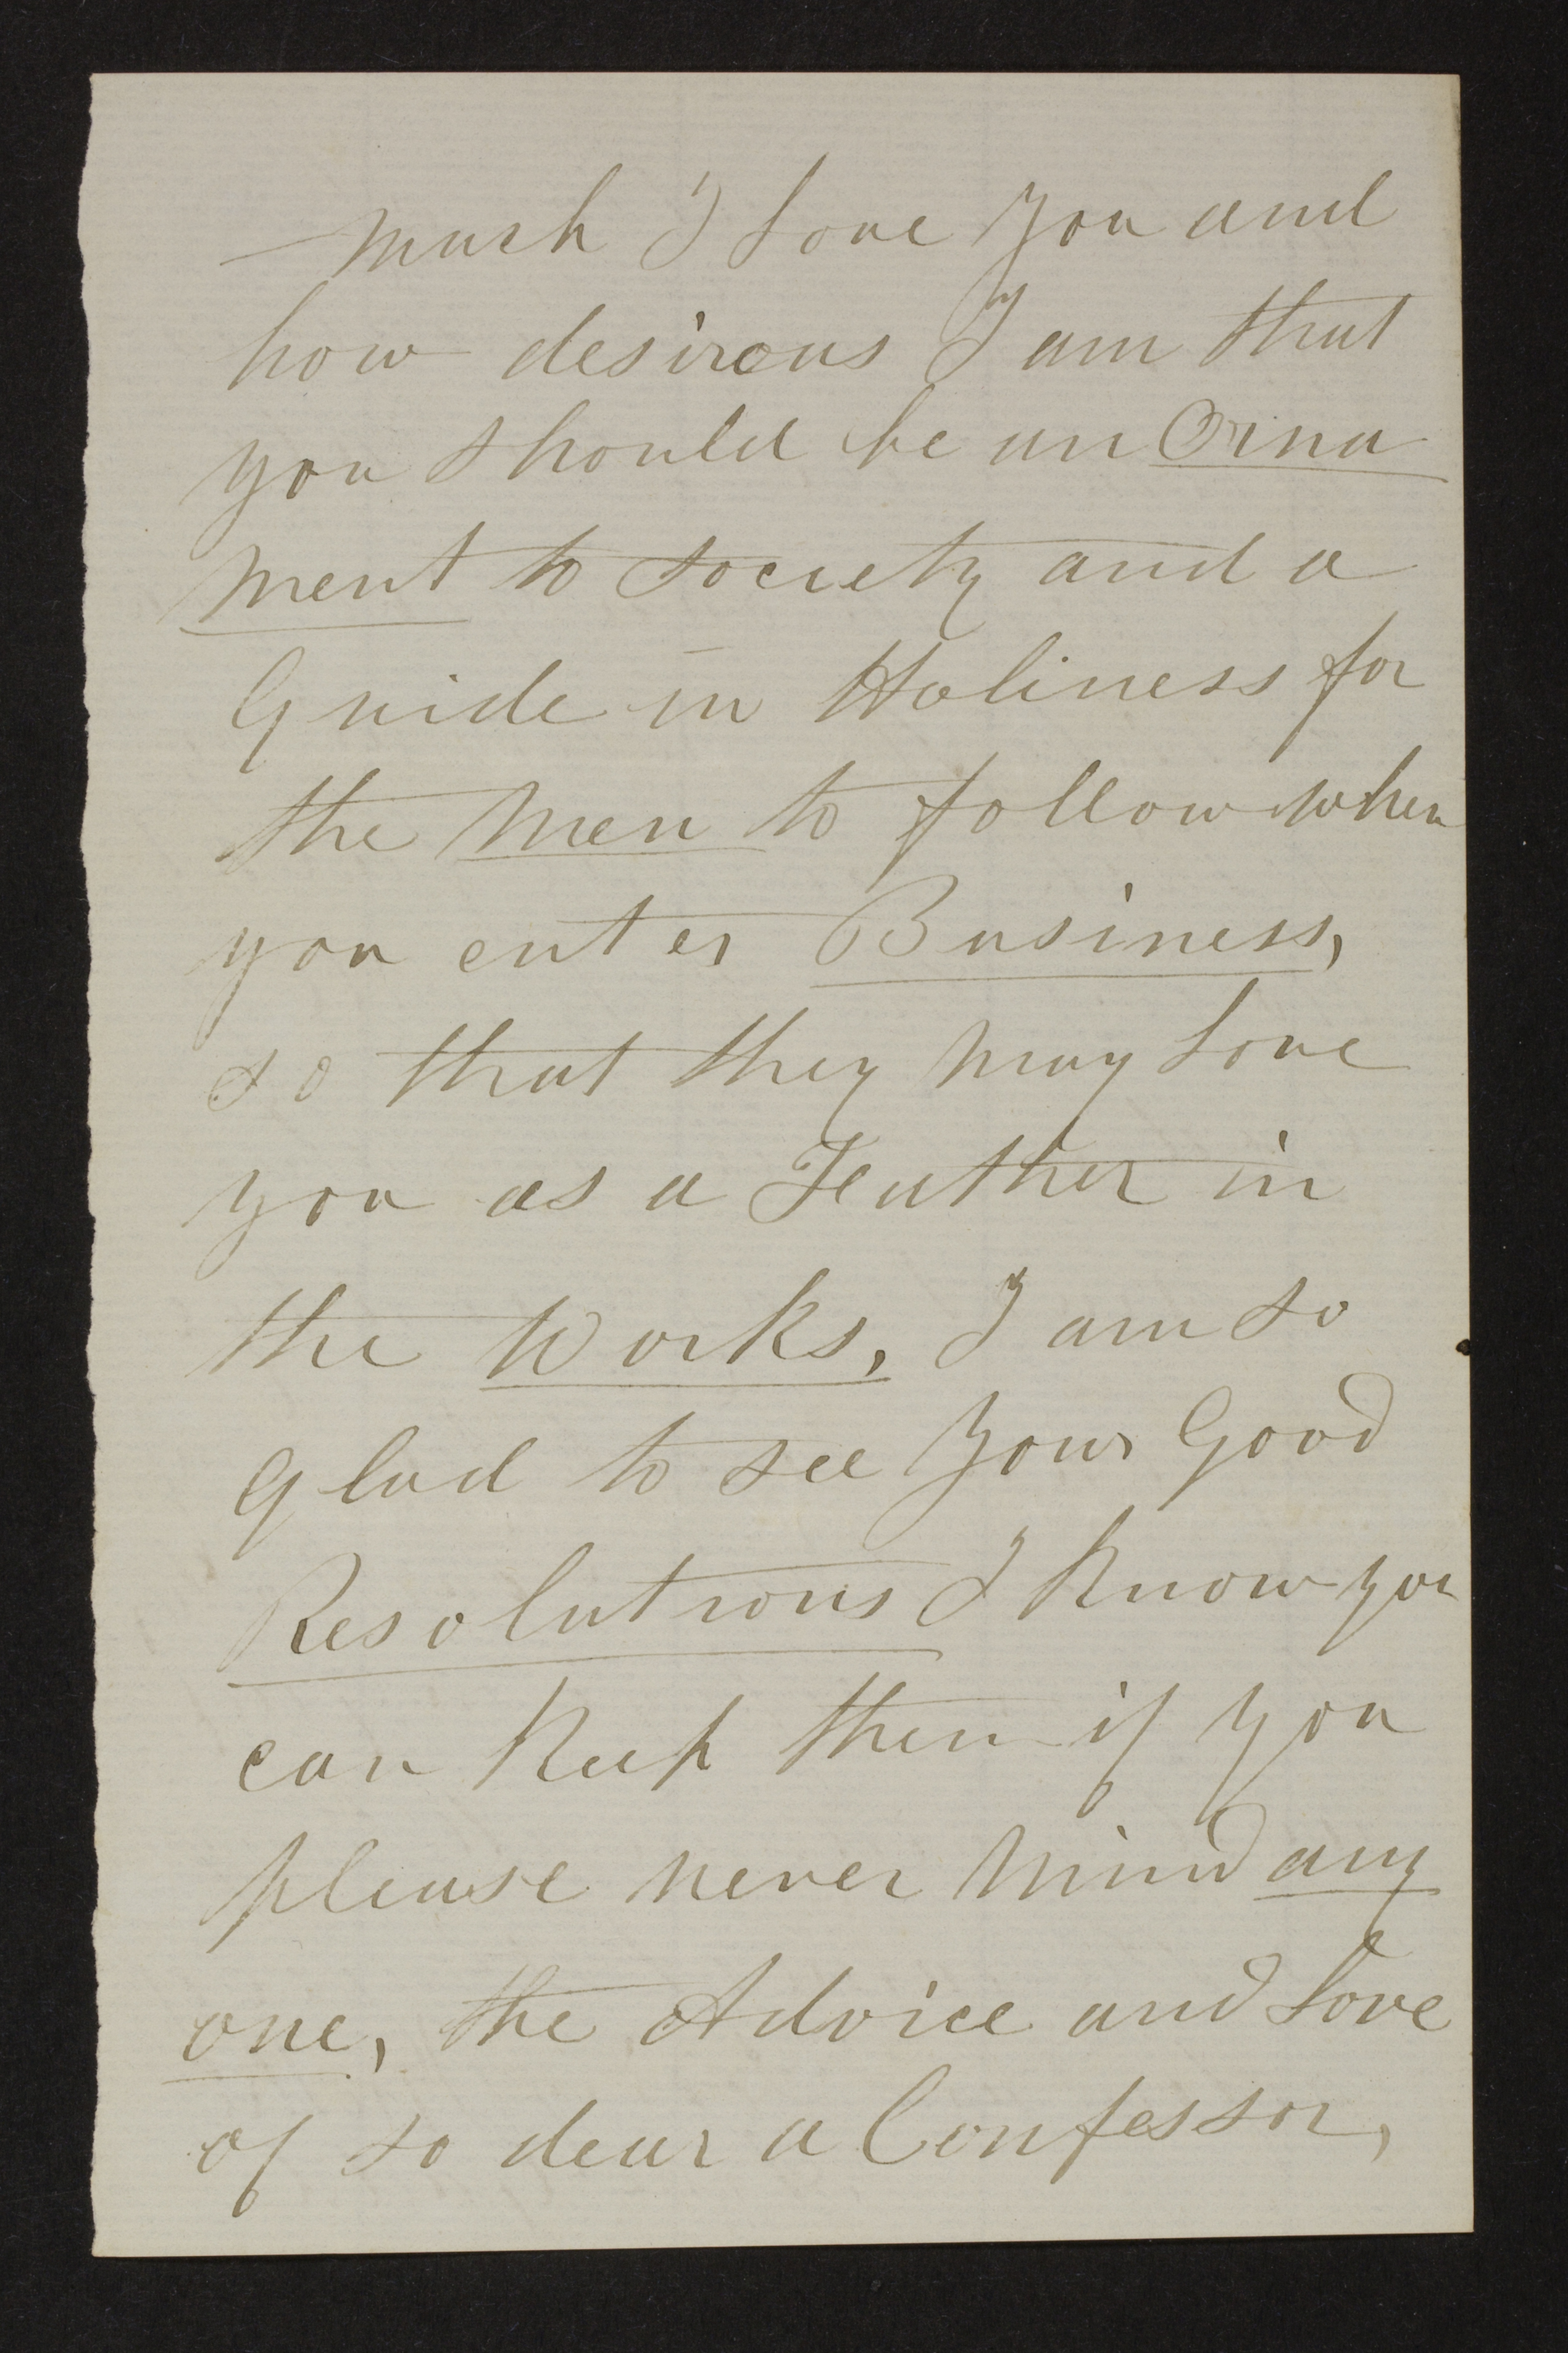 much I love you and
how desirous I am that
you should be an Orna
ment to society and a
Guide in Holiness for
the Men to follow when
you enter Business,
so that they may love
you as a Feather in
the Works, I am so
glad to see your Good
Resolutions I Know you
can Keep them if you
please never mind any
one, the Advice and Love
of so dear a Confessor,